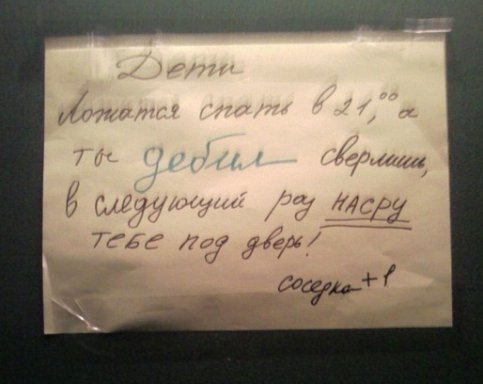 Дети
ложатся спать в 21,00 а
ты дебил сверлишь,
в следующий раз НАСРУ
ТЕБЕ под дверь!
соседка +1